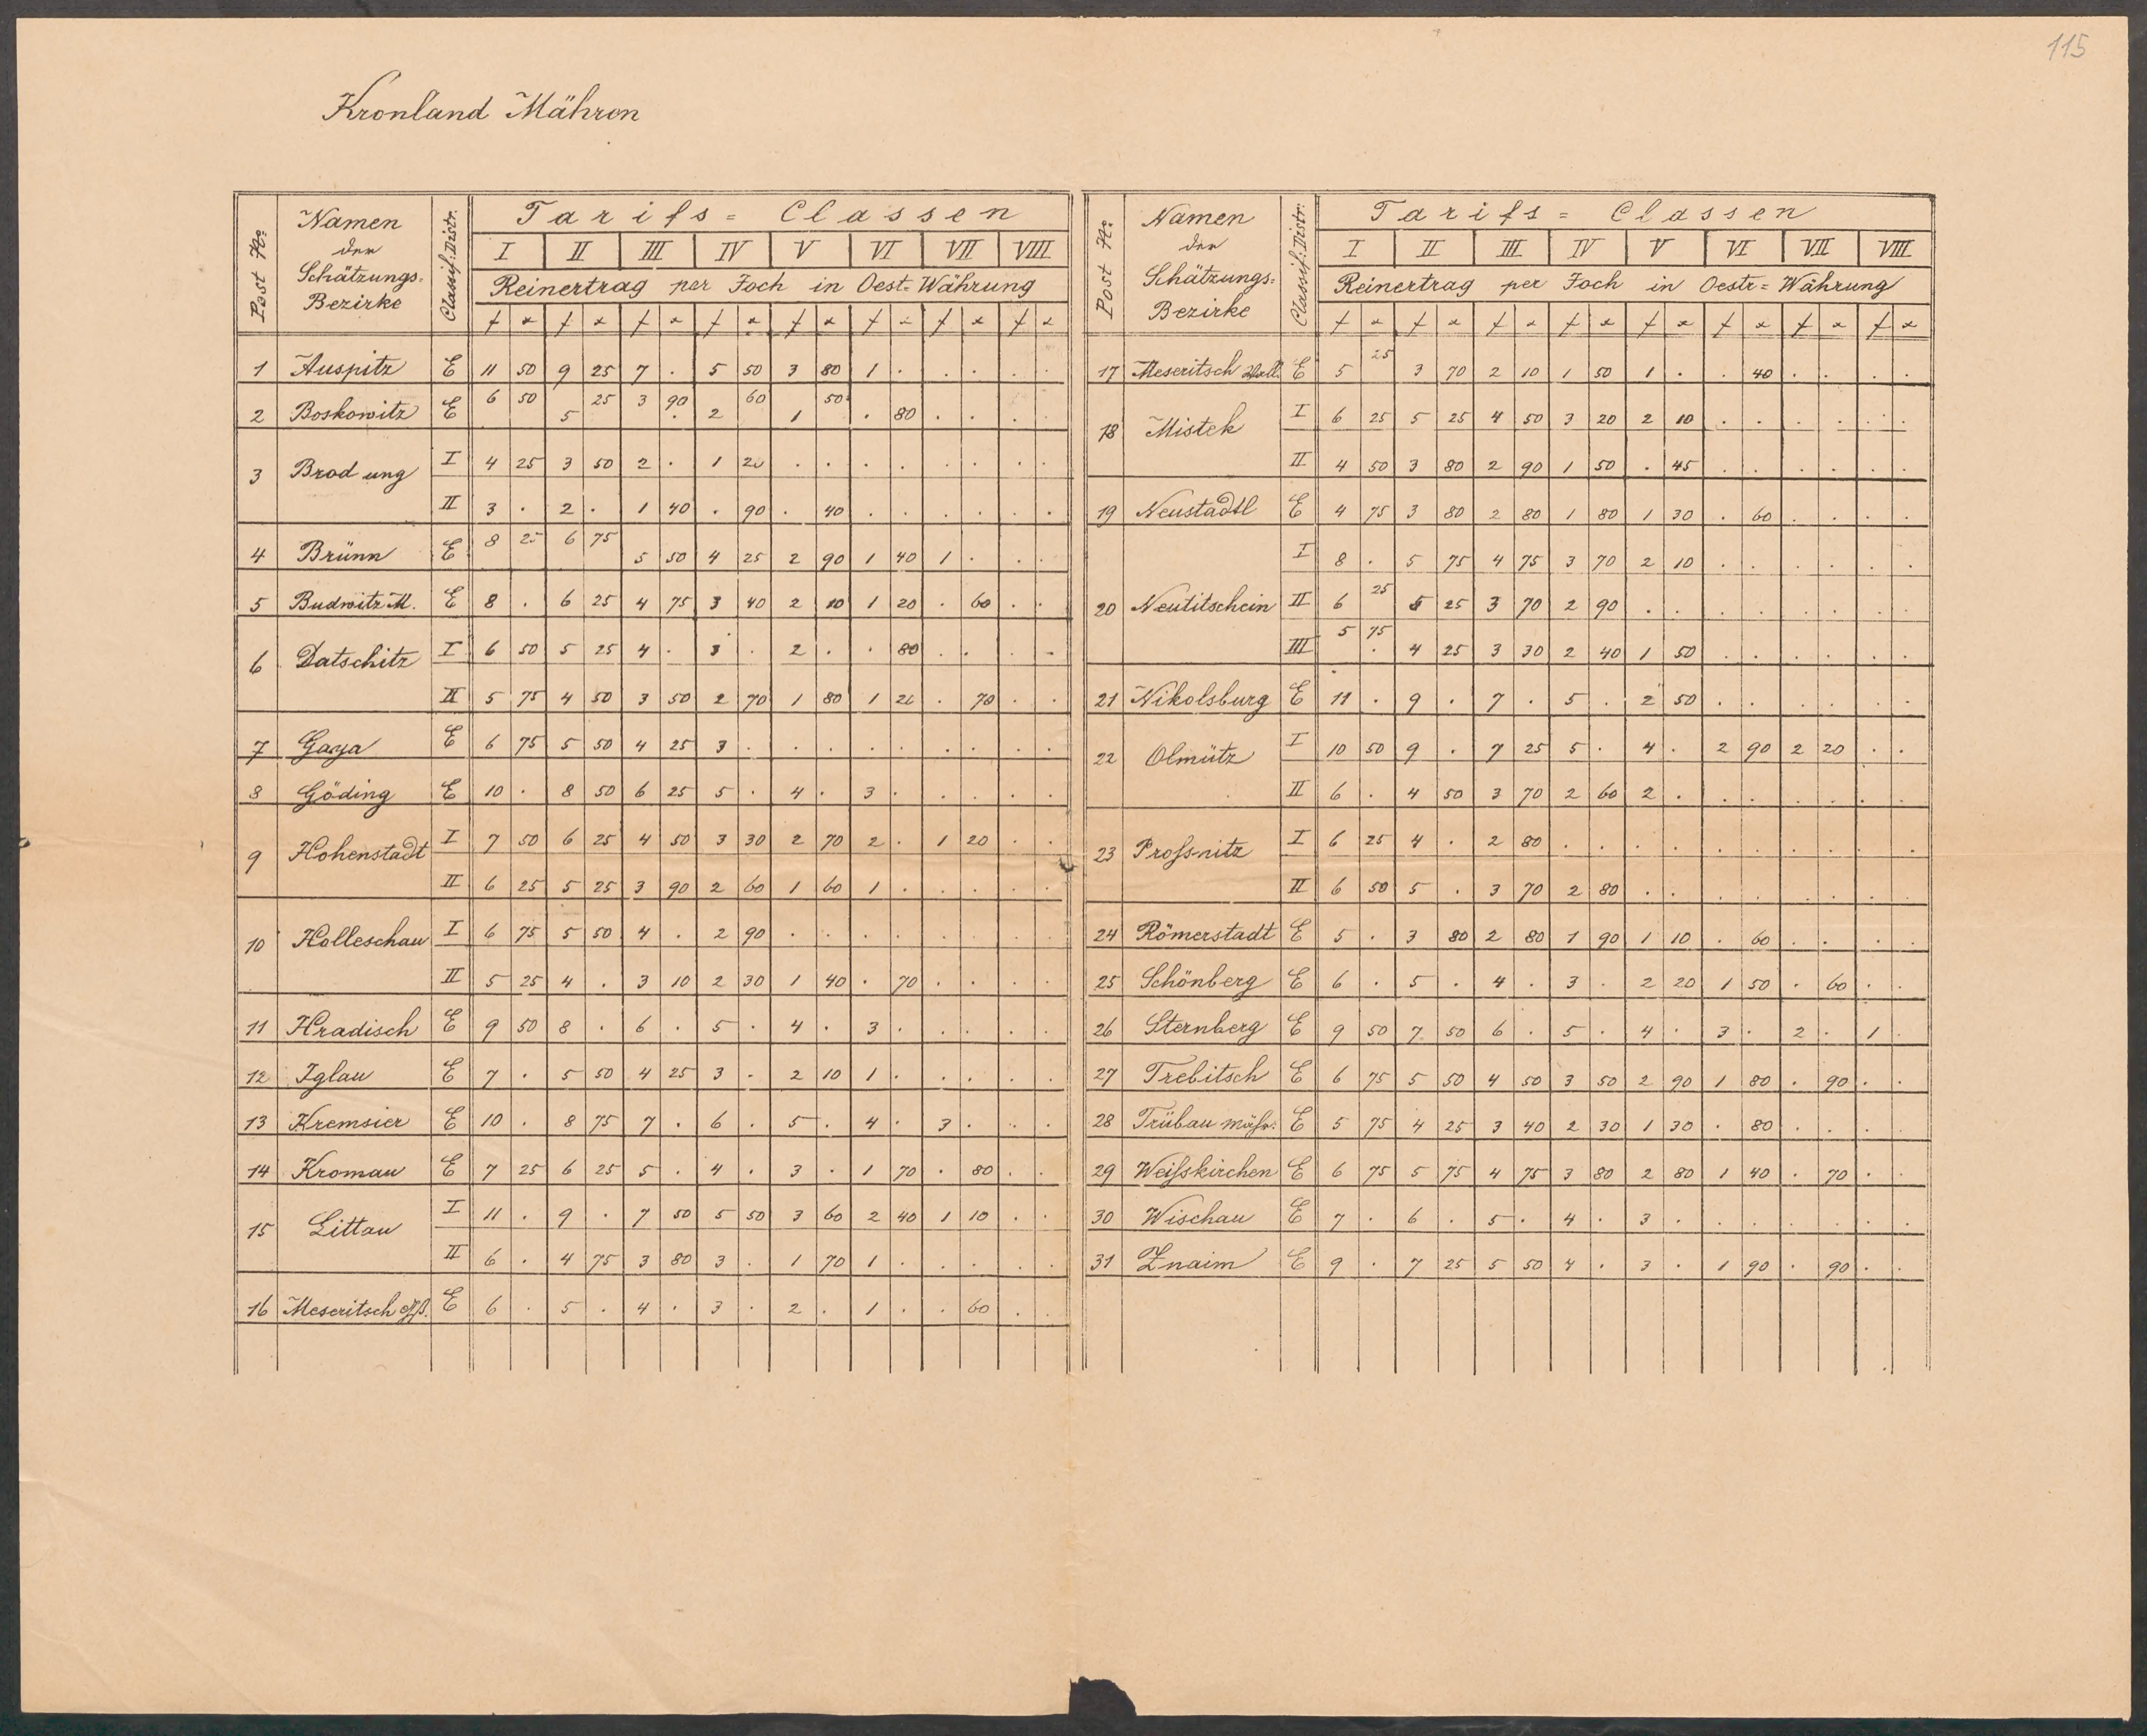 115
Kronland Mähren
Post No. Namen der Schätzungs-Bezirke Classif: Distr. Tarifs = Classen
I II III IV V VI VII VIII
Reinertrag per Joch in Oest = Währung
f x f x f x f x f x f x f x f x
1 Auspitz E 11 50 9 25 7 . 5 50 3 80 1 . . . . .
2 Boskowitz E 6 50 5 25 3 90 2 60 1 50 . 80 . . . .
3 Brod ung I 4 25 3 50 2 . 1 20 . . . . . . . .
II 3 . 2 . 1 40 . 90 . 40 . . . . . .
4 Brünn E 8 25 6 75 5 50 4 25 2 90 1 40 1 . . .
5 Budwitz M. E 8 . 6 25 4 75 3 40 2 10 1 20 . 60 . .
6 Datschitz I 6 50 5 25 4 . 3 . 2 . . 80 . . . .
II 5 75 4 50 3 50 2 70 1 80 1 20 . 70 . .
7 Gaya E 6 75 5 50 4 25 3 . . . . . . . . .
8 Göding E 10 . 8 50 6 25 5 . 4 . 3 . . . . .
9 Hohenstadt I 7 50 6 25 4 50 3 30 2 70 2 . 1 20 . .
II 6 25 5 25 3 90 2 60 1 60 1 . . . . .
10 Holleschau I 6 75 5 50 4 . 2 90 . . . . . . . .
II 5 25 4 . 3 10 2 30 1 40 . 70 . . . .
11 Hradisch E 9 50 8 . 6 . 5 . 4 . 3 . . . . .
12 Iglau E 7 . 5 50 4 25 3 . 2 10 1 . . . . .
13 Kremsier E 10 . 8 75 7 . 6 . 5 . 4 . 3 . . .
14 Kromau E 7 25 6 25 5 . 4 . 3 . 1 70 . 80 . .
15 Littau I 11 . 9 . 7 50 5 50 3 60 2 40 1 10 . .
II 6 . 4 75 3 80 3 . 1 70 1 . . . . .
16 Meseritsch groß. E 6 . 5 . 4 . 3 . 2 . 1 . . 60 . .
Post No. Namen der Schätzungs-Bezirke Classif: Distr: Tarifs = Classen
I II III IV V VI VII VIII
Reinertrag per Joch in Oestr = Währung
f x f x f x f x f x f x f x f x
17 Meseritsch Wall. E 5 25 3 70 2 10 1 50 1 . . 40 . . . .
18 Mistek I 6 25 5 25 4 50 3 20 2 10 . . . . . .
II 4 50 3 80 2 90 1 50 . 45 . . . . . .
19 Neustadtl E 4 75 3 80 2 80 1 80 1 30 . 60 . . . .
20 Neutitschein I 8 . 5 75 4 75 3 70 2 10 . . . . . .
II 6 25 5 25 3 70 2 90 . . . . . . . .
III 5 75 4 25 3 30 2 40 1 50 . . . . . .
21 Nikolsburg E 11 . 9 . 7 . 5 . 2 50 . . . . . .
22 Olmütz I 10 50 9 . 7 25 5 . 4 . 2 90 2 20 . .
II 6 . 4 50 3 70 2 60 2 . . . . . . .
23 Proſsnitz I 6 25 4 . 2 80 . . . . . . . . . .
II 6 50 5 . 3 70 2 80 . . . . . . . .
24 Römerstadt E 5 . 3 80 2 80 1 90 1 10 . 60 . . . .
25 Schönberg E 6 . 5 . 4 . 3 . 2 20 1 50 . 60 . .
26 Sternberg E 9 50 7 50 6 . 5 . 4 . 3 . 2 . 1 .
27 Trebitsch E 6 75 5 50 4 50 3 50 2 90 1 80 . 90 . .
28 Trübau mähr. E 5 75 4 25 3 40 2 30 1 30 . 80 . . . .
29 Weiſskirchen E 6 75 5 75 4 75 3 80 2 80 1 40 . 70 . .
30 Wischau E 7 . 6 . 5 . 4 . 3 . . . . . . .
31 Znaim E 9 . 7 25 5 50 4 . 3 . 1 90 . 90 . .